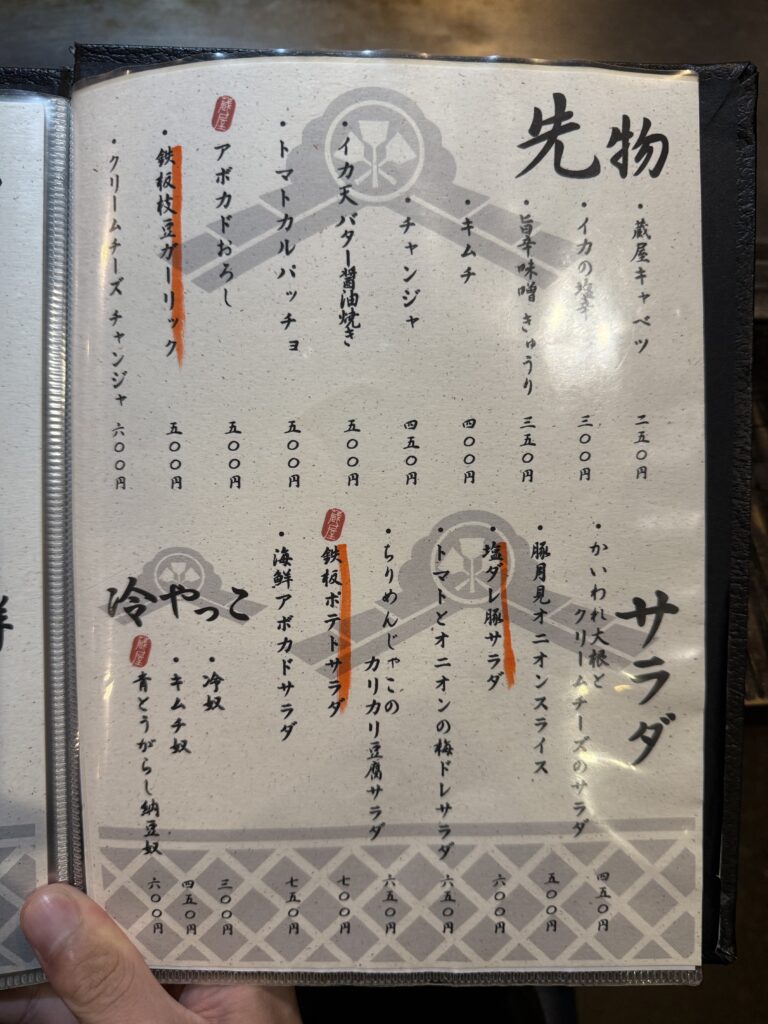 先物
・蔵屋キャベツ 二五〇円
・イカの塩辛 三〇〇円
・旨辛味噌きゅうり 三五〇円
・キムチ 四〇〇円
・チャンジャ 四五〇円
・イカ天バター醤油焼き 五〇〇円
・トマトカルパッチョ 五〇〇円
蔵屋 アボカドおろし 五〇〇円
・鉄板枝豆ガーリック 五〇〇円
・クリームチーズ チャンジャ 六〇〇円
サラダ
・かいわれ大根と
クリームチーズのサラダ 四五〇円
・豚月見オニオンスライス 五〇〇円
・塩ダレ豚サラダ 六〇〇円
・トマトとオニオンの梅ドレサラダ 六五〇円
・ちりめんじゃこの
カリカリ豆腐サラダ 六五〇円
蔵屋 鉄板ポテトサラダ 七〇〇円
・海鮮アボカドサラダ 七五〇円
冷やっこ
・冷奴 三〇〇円
・キムチ奴 四五〇円
蔵屋 青とうがらし納豆奴 六〇〇円